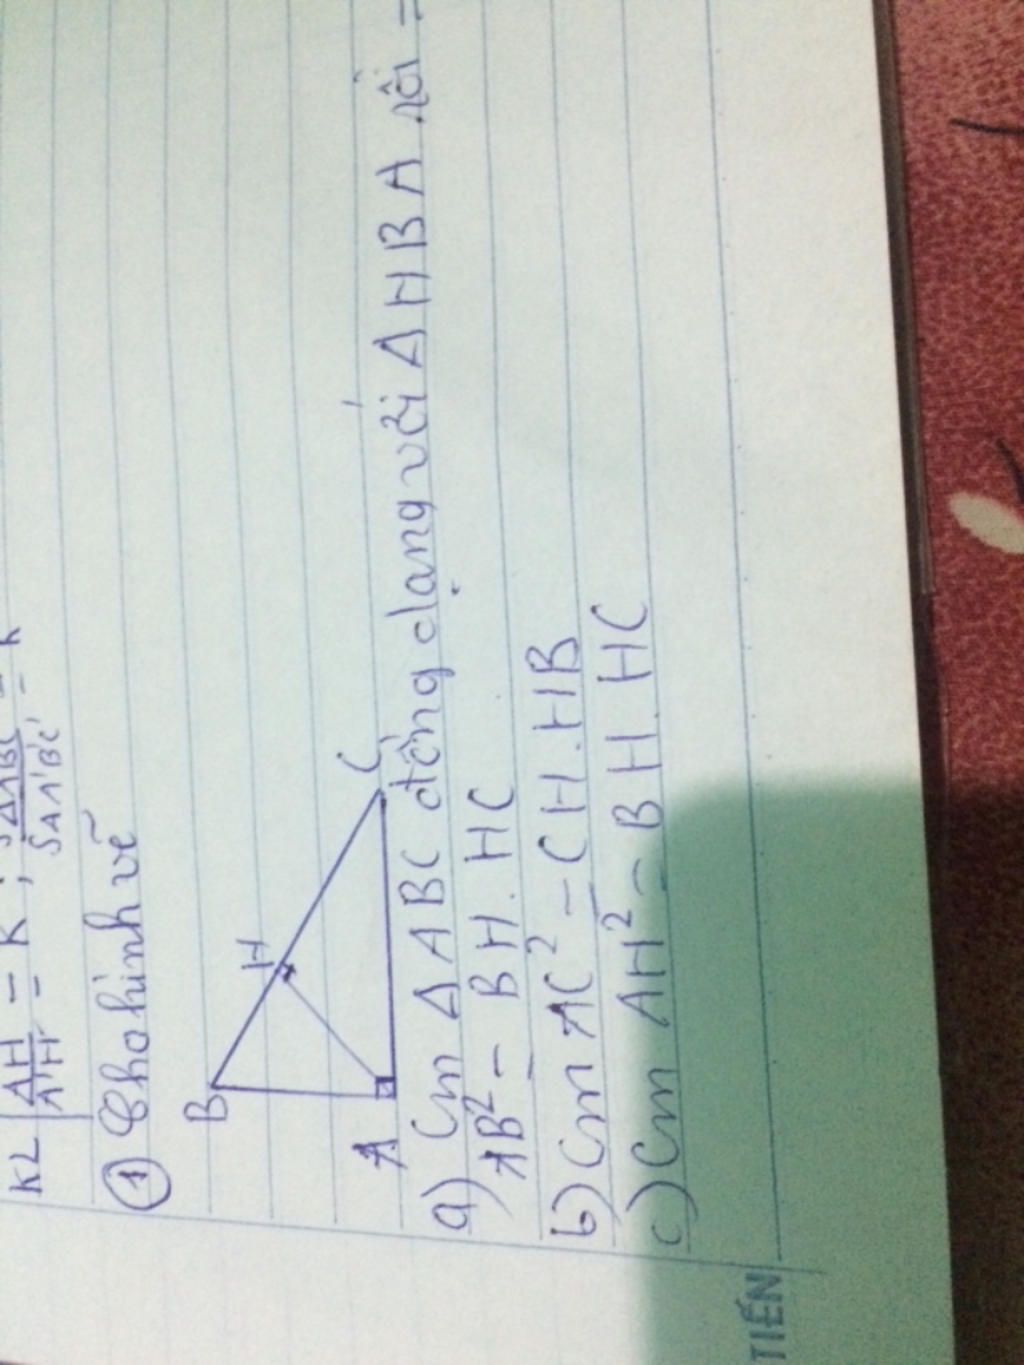 KL | AH/A'H' = K ; SΔABC/SΔA'B'C' = K
① Cho hình vẽ
B
H
A
C
a) Cm Δ ABC đồng dạng với Δ HBA rồi =
AB² = BH. HC
b) Cm AC² = CH. HB
c) Cm AH² = BH. HC
TIẾN